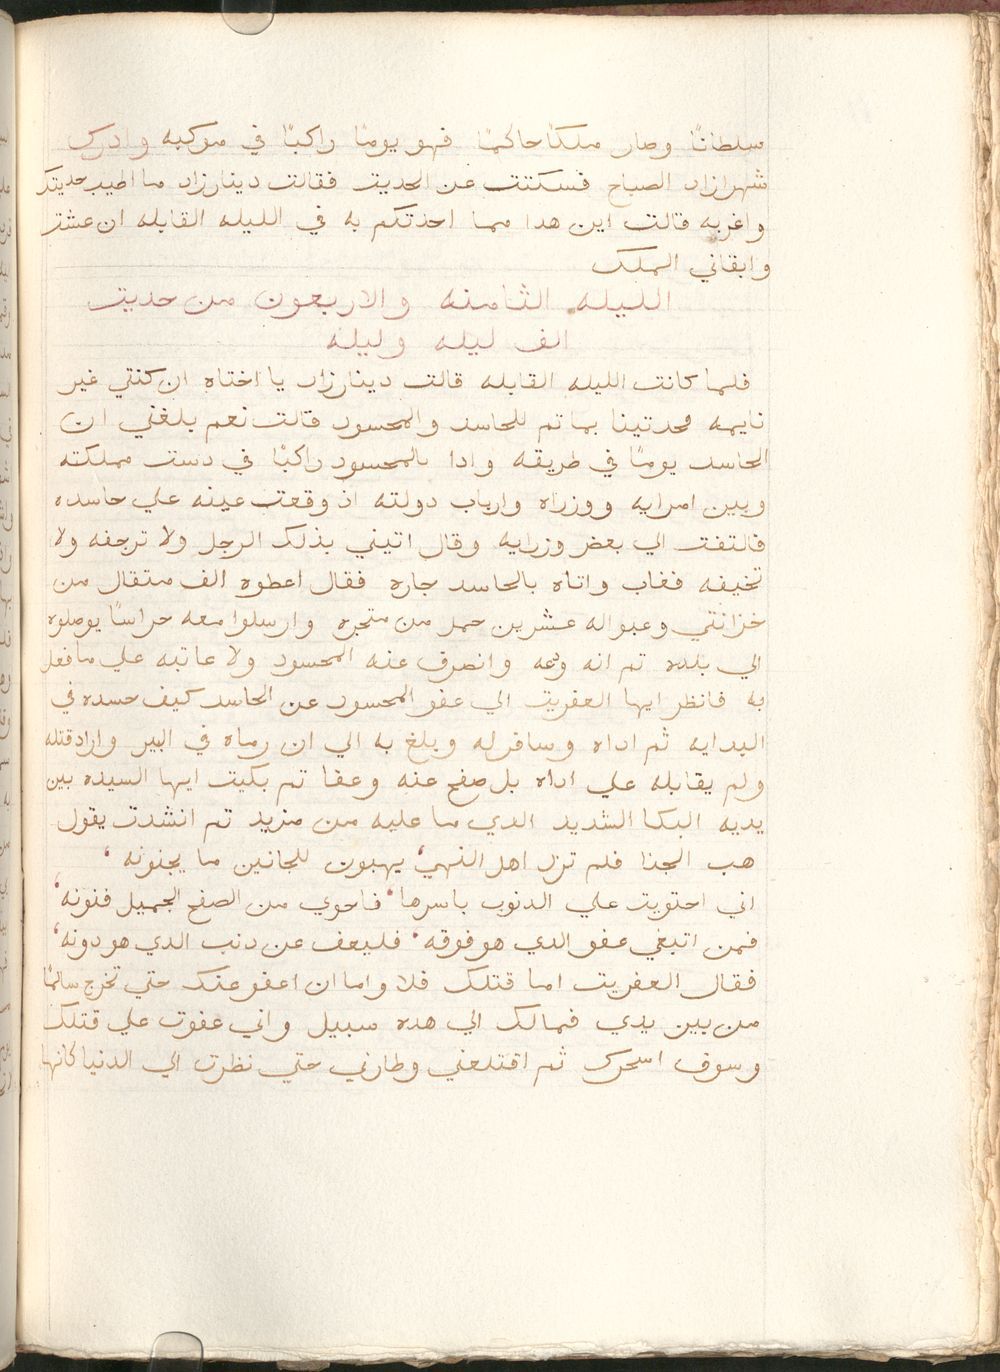 سلطانًا وصار ملكًا حاكمًا فهو يومًا راكبًا في موكبه وادرك
شهرازاد الصباح فسكتت عن الحديت فقالت دينارزاد ما اطيب حديتك
واغربه قالت اين هدا مما احدتكم به في الليله القابله ان عشت
وابقاني الملك
الليله الثامنه والاربعون من حديت
الف ليله وليله
فلما كانت الليله القابله قالت دينارزاد يا اختاه ان كنتي غير
نايمه فحدتينا بما تم للحاسد والمحسود قالت نعم بلغني ان
الحاسد يومًا في طريقه وادا بالمحسود راكبًا في دست مملكته
وبين امرايه ووزراه وارباب دولته اذ وقعت عينه علي حاسده
فالتفت الي بعض وزرايه وقال اتيني بذلك الرجل ولا ترجفه ولا
تخيفه فغاب واتاه بالحاسد جاره فقال اعطوه الف متقال من
خزانتي وعبواله عشرين حمل من متجره وارسلوا معه حراسًا يوصلوه
الي بلده تم انه ودعه وانصرف عنه المحسود ولا عاتبه علي ما فعل
به فانظر ايها العفريت الي عفو المحسود عن الحاسد كيف حسده في
البدايه ثم اداه وسافر له وبلغ به الي ان رماه في البير واراد قتله
ولم يقابله علي اداه بل صفح عنه وعفا تم بكيت ايها السيده بين
يديه البكا الشديد الدي ما عليه من مزيد تم انشدت يقول
هب الجنا فلم تزل اهل النهي، يهبون للجانين ما يجنونه،
اني احتويت علي الدنوب باسرها، فاحوي من الصفح الجميل فنونه،
فمن اتبغي عفو الدي هو فوقه، فليعف عن دنب الدي هو دونه،
فقال العفريت اما قتلك فلا واما ان اعفو عنك حتي تخرج سالمًا
من بين يدي فمالك الي هده سبيل واني عفوت علي قتلك
وسوف اسحرك ثم اقتلعني وطارني حتي نظرت الي الدنيا كانها